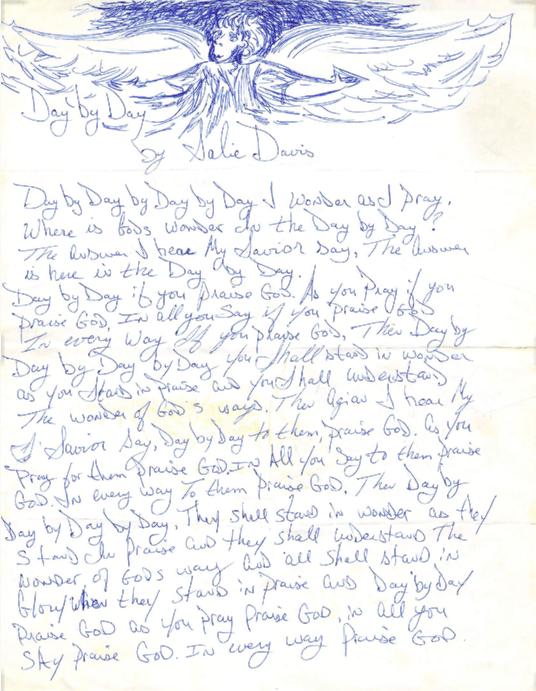 Day by Day
by Salie Davis
Day by Day by Day by Day I wonder as I pray,
Where is Gods wonder In the Day by Day?
The answer I hear My Savior say, The answer
is here in the Day by Day.
Day by Day if you praise God. As you pray if you
praise God, In all you say if you praise God
In every way If you praise God, Then Day by
Day by Day by Day you shall stand in wonder
as you stand in praise and you shall understand
The wonder of God's ways. Then Agian I hear My
Savior say, Day by Day to them, praise God. As you
pray for them praise God. In All you say to them praise
God. In every way To them praise God, Then Day by
Day by Day by Day, They shall stand in wonder as they
stand In praise and they shall understand The
wonder of Gods way and all shall stand in
Glory when they stand in praise and Day by Day
praise God as you pray praise God, in all you
say praise God. In every way praise God.